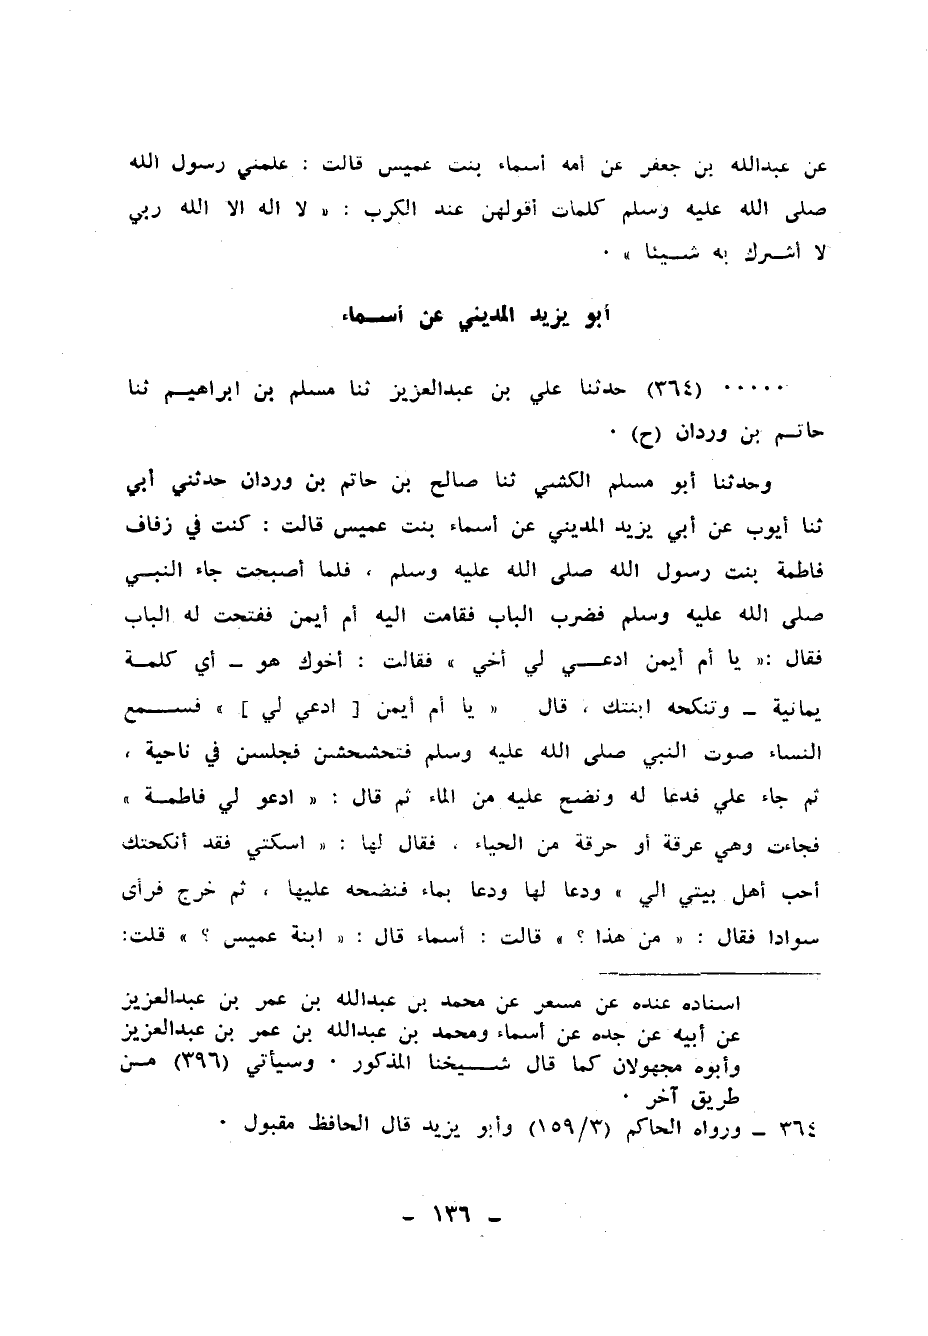 عن عبدالله بن جعفر عن أمه أسماء بنت عميس قالت : علمني رسول الله
صلى الله عليه وسلم كلمات أقولهن عند الكرب : « لا اله الا الله ربي
لا أشرك به شيئا » ٠
أبو يزيد المديني عن أسماء
٠٠٠٠٠ (٣٦٤) حدثنا علي بن عبدالعزيز ثنا مسلم بن ابراهيم ثنا
حاتم بن وردان (ح) ٠
وحدثنا أبو مسلم الكشي ثنا صالح بن حاتم بن وردان حدثني أبي
ثنا أيوب عن أبي يزيد المديني عن أسماء بنت عميس قالت : كنت في زفاف
فاطمة بنت رسول الله صلى الله عليه وسلم ، فلما أصبحت جاء النبي
صلى الله عليه وسلم فضرب الباب فقامت اليه أم أيمن ففتحت له الباب
فقال :« يا أم أيمن ادعي لي أخي » فقالت : أخوك هو ـ أي كلمة
يمانية ـ وتنكحه ابنتك ، قال « يا أم أيمن [ ادعي لي ] » فسمع
النساء صوت النبي صلى الله عليه وسلم فتحشحشن فجلسن في ناحية ،
ثم جاء علي فدعا له ونضح عليه من الماء ثم قال : « ادعو لي فاطمة »
فجاءت وهي عرقة أو حرقة من الحياء ، فقال لها : « اسكتي فقد أنكحتك
أحب أهل بيتي الي » ودعا لها ودعا بماء فنضحه عليها ، ثم خرج فرأى
سوادا فقال : « من هذا ؟ » قالت : أسماء قال : « ابنة عميس ؟ » قلت:
اسناده عنده عن مسعر عن محمد بن عبدالله بن عمر بن عبدالعزيز
عن أبيه عن جده عن أسماء ومحمد بن عبدالله بن عمر بن عبدالعزيز
وأبوه مجهولان كما قال شيخنا المذكور ٠ وسيأتي (٣٩٦) من
طريق آخر ٠
٣٦٤ ـ ورواه الحاكم (١٥٩/٣) وأبو يزيد قال الحافظ مقبول ٠
ـ ١٣٦ ـ